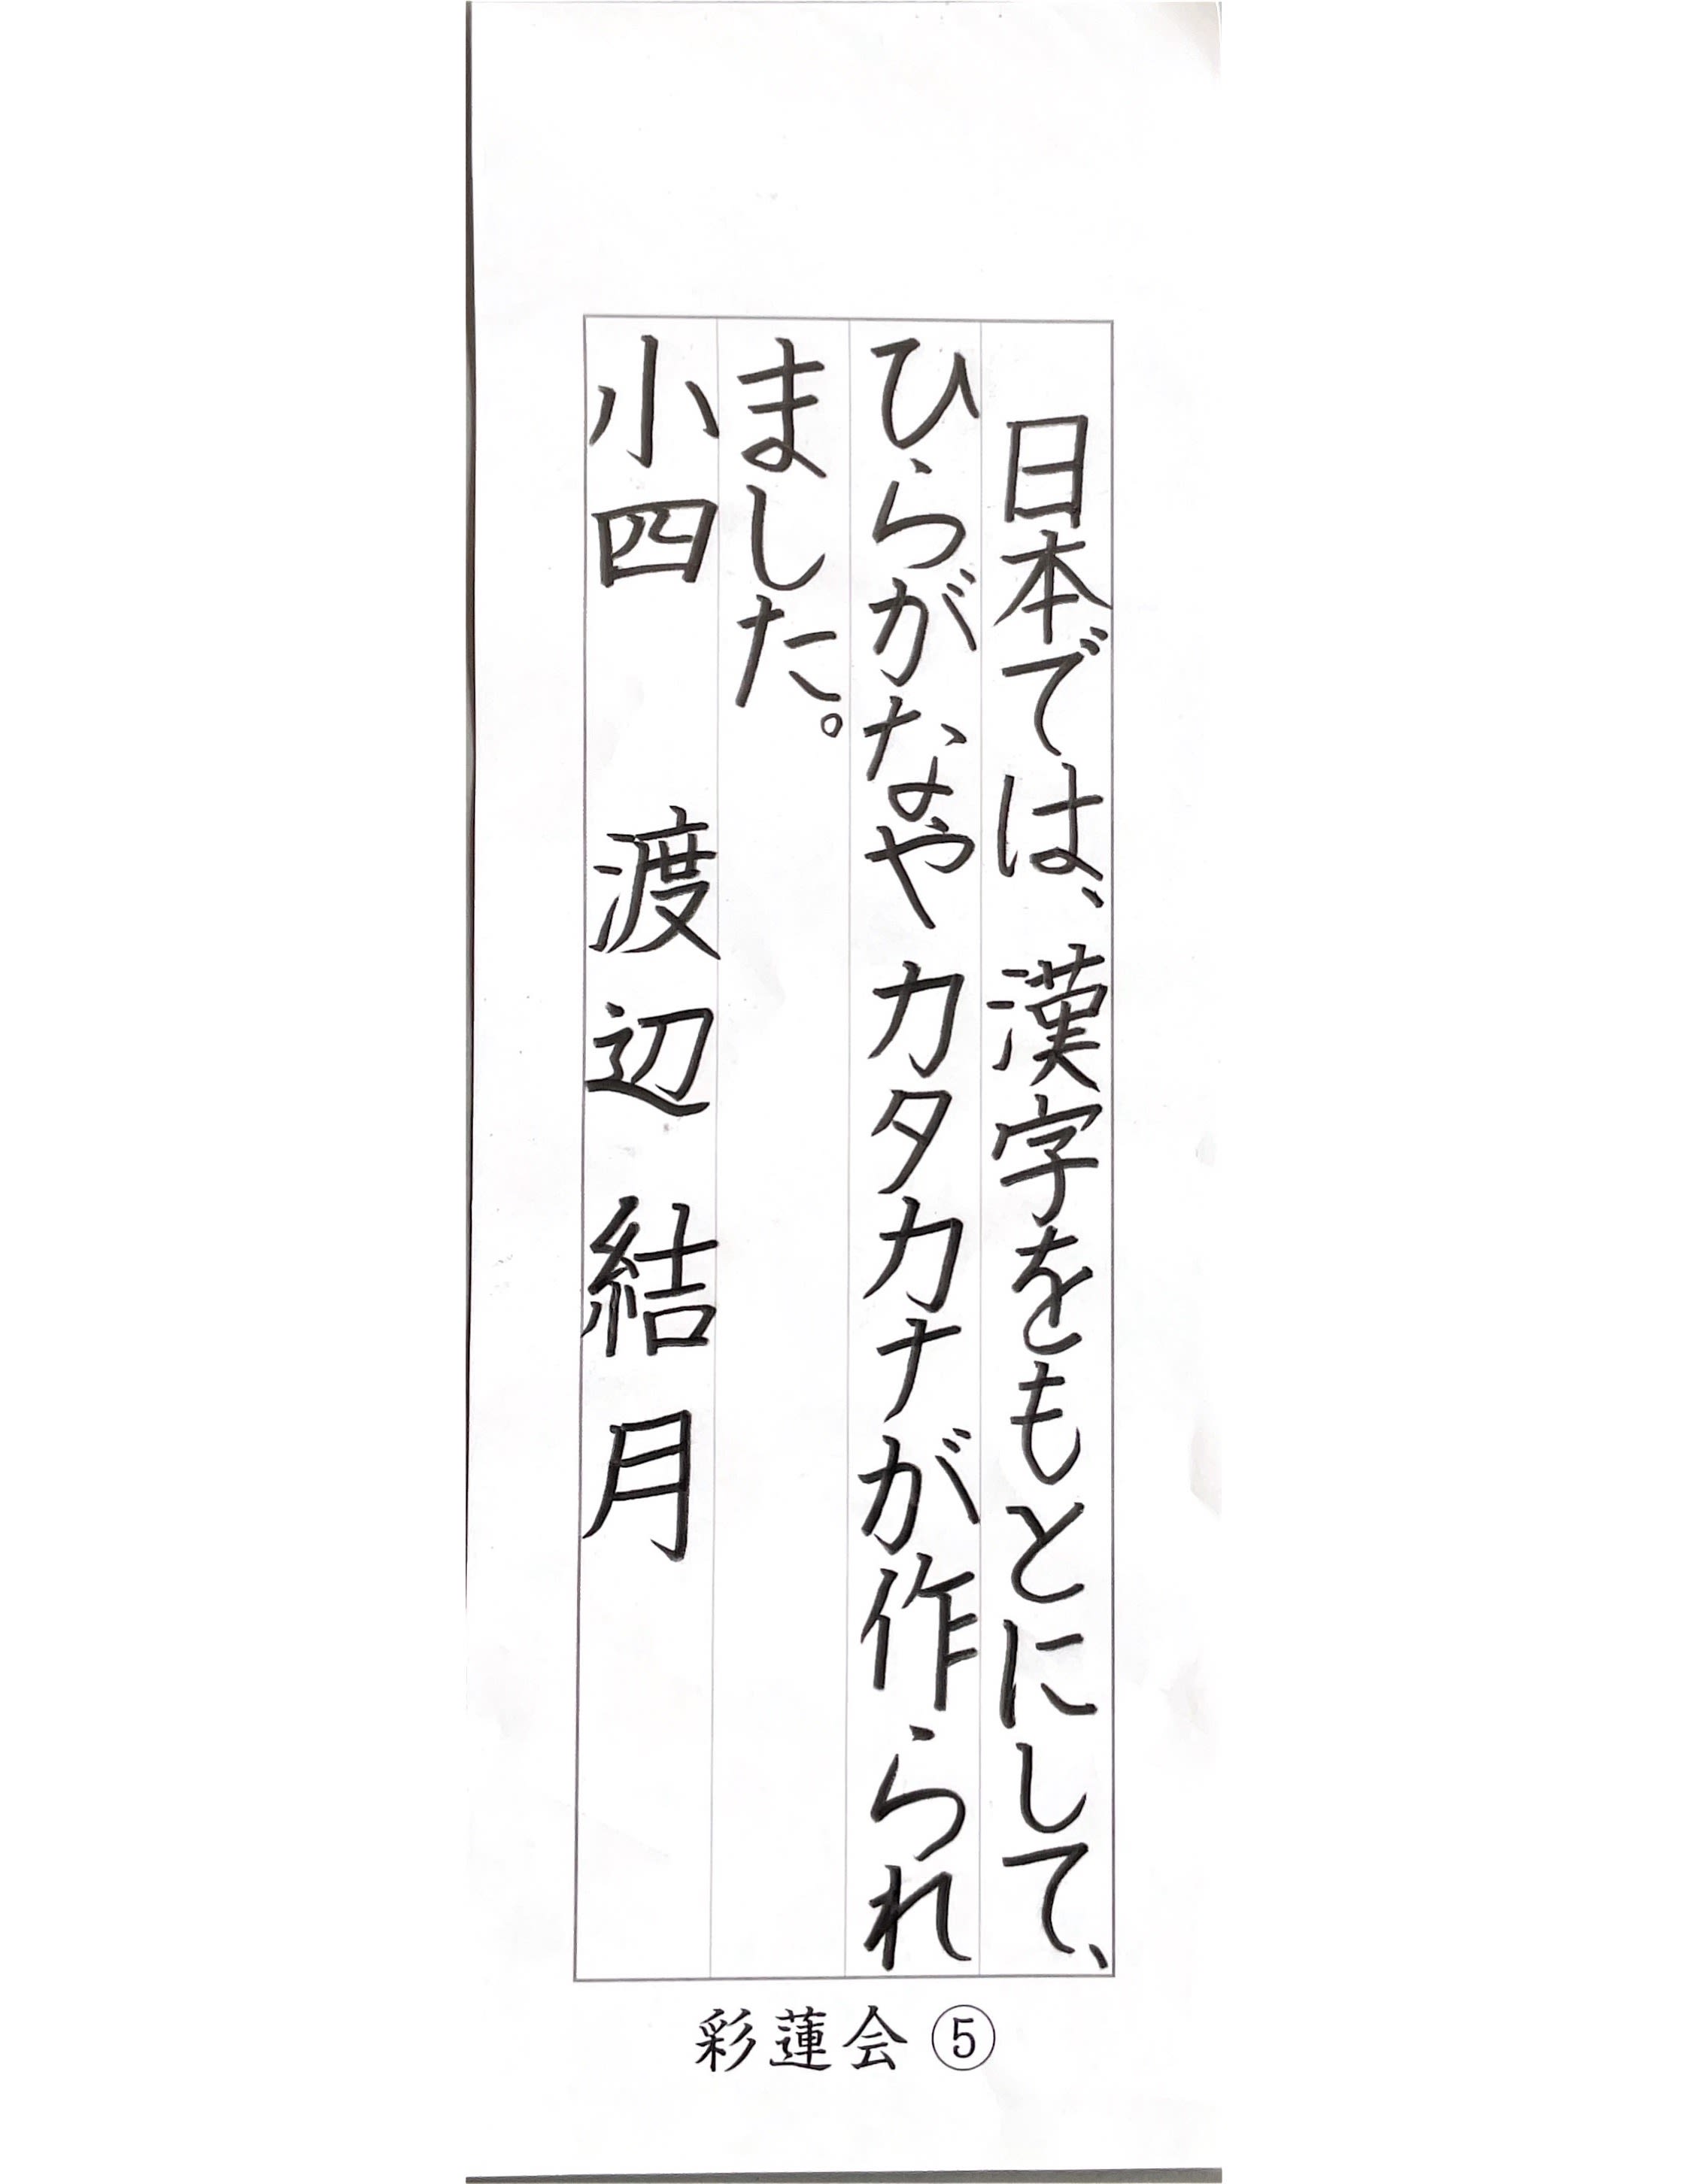 日本では、漢字をもとにして、
ひらがなやカタカナが作られ
ました。
小四 渡辺結月
彩蓮会⑤